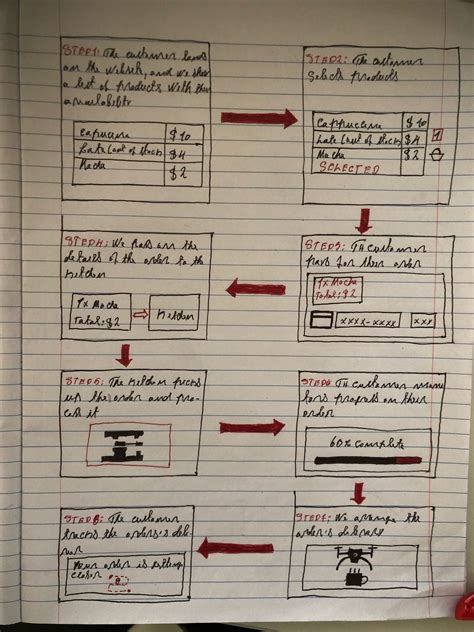 STEP1: The customer lands
on the website, and we show
a list of products with their
availability
Cappuccino $10
Late (out of stock) $4
Mocha $2
STEP2: The customer
Selects products
Cappuccino $10
Late (out of stock) $4 1
Mocha $2
SELECTED
STEP3: The customer
pays for their order
1x Mocha
Total: $2
xxxx-xxxx xxx
STEP4: We pass on the
details of the order to the
kitchen
1x Mocha
Total: $2
Kitchen
STEP5: The kitchen picks
up the order and pro-
cess it
STEP6: The customer moni-
tors progress on their
order
60% Complete
STEP7: We arrange the
order's delivery
STEP8: The customer
tracks the orders's deli-
Your order is getting
closer